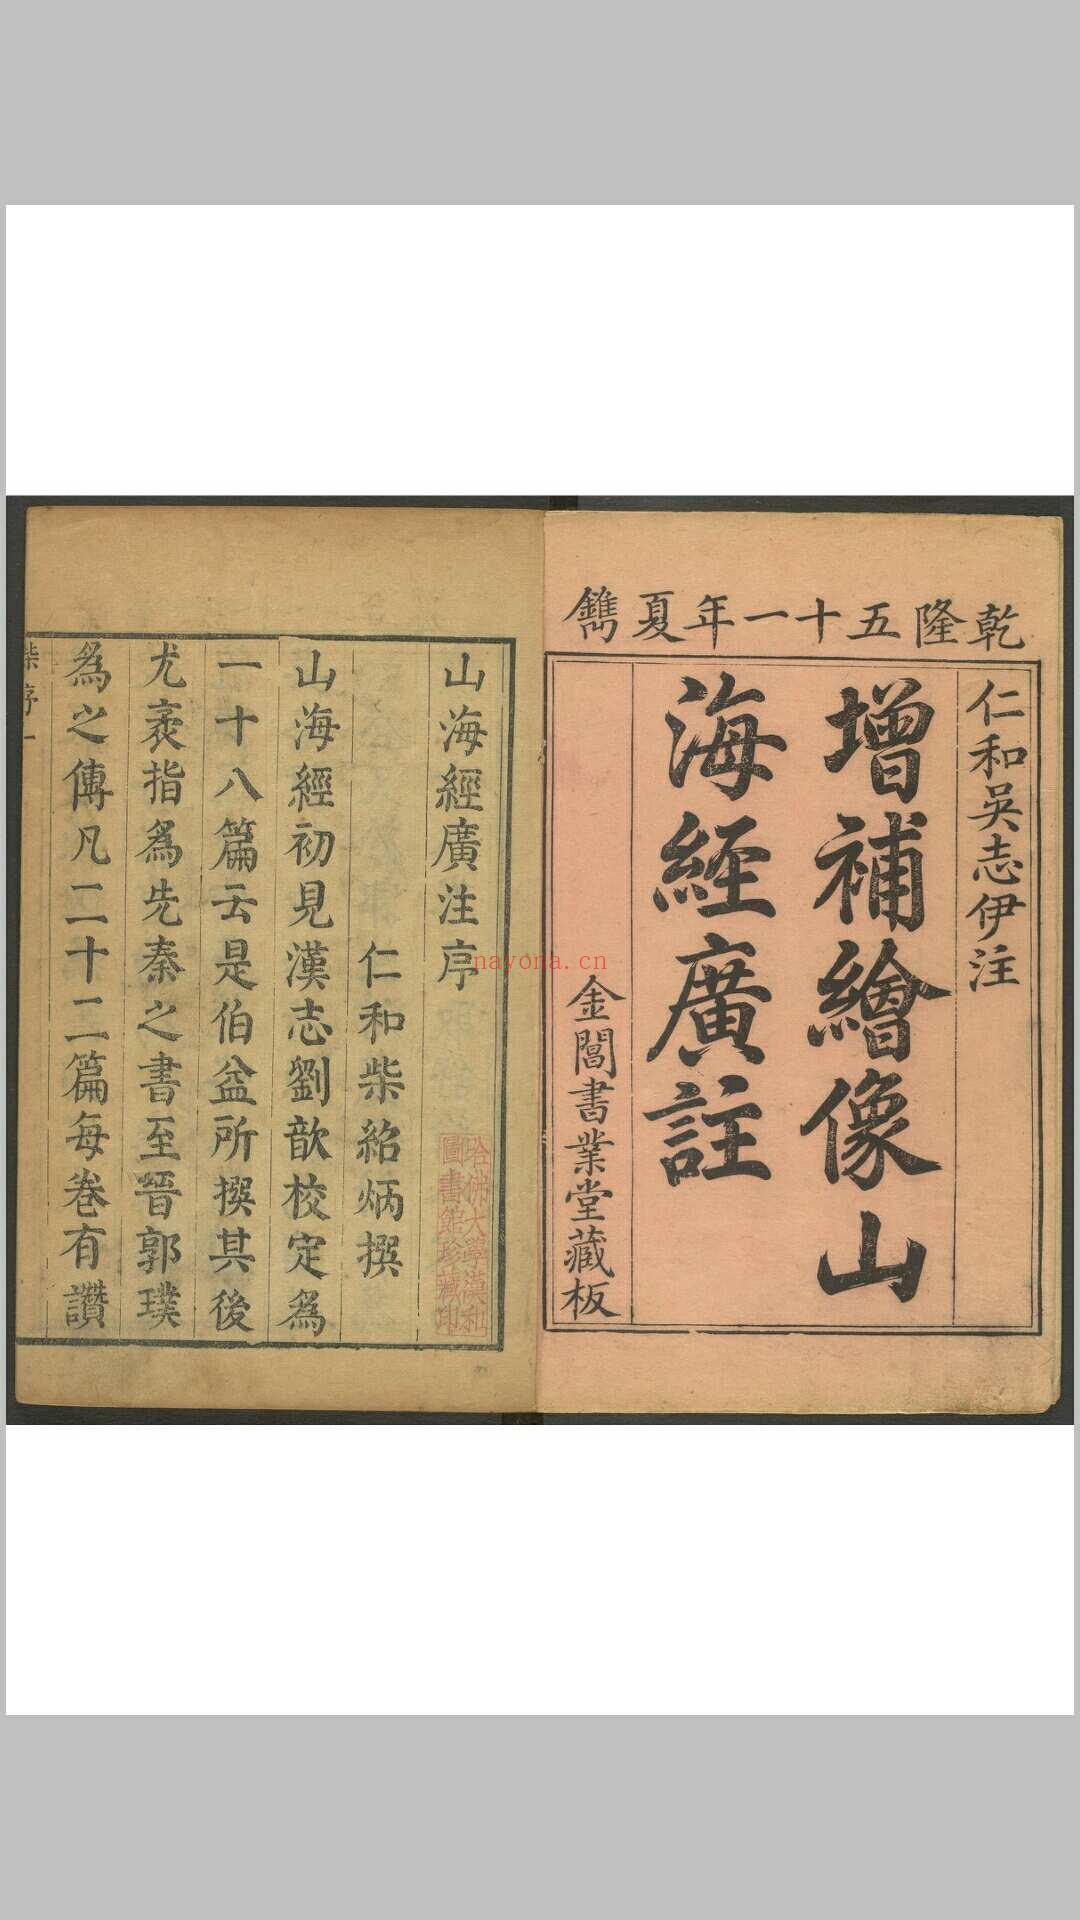 乾隆五十一年夏鐫
仁和吳志伊注
增補繪像山
海經廣註
金閶書業堂藏板
山海經廣注序
仁和柴紹炳撰
山海經初見漢志劉歆校定爲
一十八篇云是伯益所撰其後
尤袤指爲先秦之書至晉郭璞
爲之傳凡二十二篇每卷有讚
柴序 一
哈佛大學漢和
圖書館珍藏印
nayona.cn